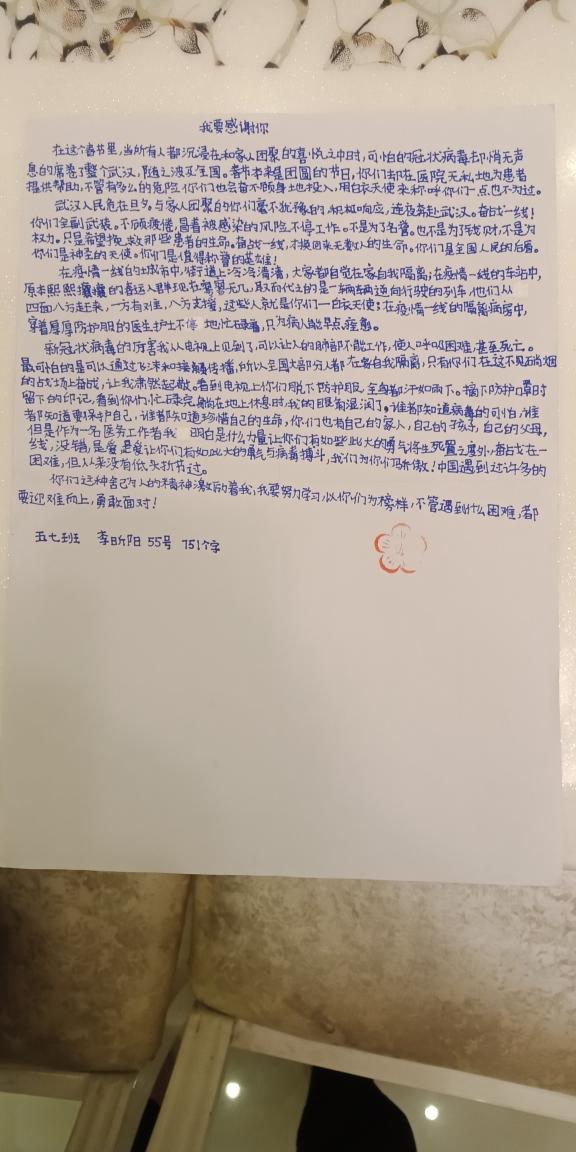 我要感谢你
在这个春节里,当所有人都沉浸在和家人团聚的喜悦之中时,可怕的冠状病毒却悄无声
息的席卷了整个武汉,随之波及全国。春节本来是团圆的节日,你们却在医院无私地为患者
提供帮助,不管有多么的危险你们也会奋不顾身地投入,用白衣天使来称呼你们一点也不为过。
武汉人民危在旦夕。与家人团聚的你们毫不犹豫的积极响应,连夜奔赴武汉。奋战一线!
你们全副武装。不顾疲倦,冒着被感染的风险不停工作。不是为了名誉。也不是为了钱财,不是为
权力。只是希望挽救那些患者的生命。奋战一线,不换回来无数人的生命。你们是全国人民的后盾。
你们是神圣的天使。你们是值得称赞的英雄!
在疫情一线的城市中,街道上冷冷清清,大家都自觉在家自我隔离;在疫情一线的车站中,
原本熙熙攘攘的春运人群现在寥寥无几,取而代之的是一辆辆逆向行驶的列车,他们从
四面八方赶来,一方有难,八方支援,这些人就是你们一白衣天使;在疫情一线的隔离病房中,
穿着厚厚防护服的医生护士不停地忙碌着,只为病人能早点痊愈。
新冠状病毒的厉害我从电视上见到了,可以让人的肺部不能工作,使人呼吸困难,甚至死亡。
最可怕的是可以通过飞沫和接触传播,所以全国大部分人都在各自我隔离,只有你们在这不见硝烟
的战场上奋战,让我肃然起敬。看到电视上你们脱下防护服,全身都汗如雨下。摘下防护口罩时
留下的印记,看到你们忙碌完躺在地上休息时,我的眼眶湿润了。谁都知道病毒的可怕,谁
都知道要保护自己,谁都知道珍惜自己的生命,你们也有自己的家人,自己的孩子,自己的父母,
但是作为一名医务工作者我 明白是什么力量让你们有如些此大的勇气将生死置之度外,奋战在一
线,没错,是爱,是爱让你们有如此大的勇气与病毒搏斗,我们为你们骄傲!中国遇到过许多的
困难,但从来没有低头折节过。
你们这种舍己为人的精神激励着我,我要努力学习,以你们为榜样,不管遇到什么困难,都
要迎难而上,勇敢面对!
五七班 李昕阳 55号 751个字